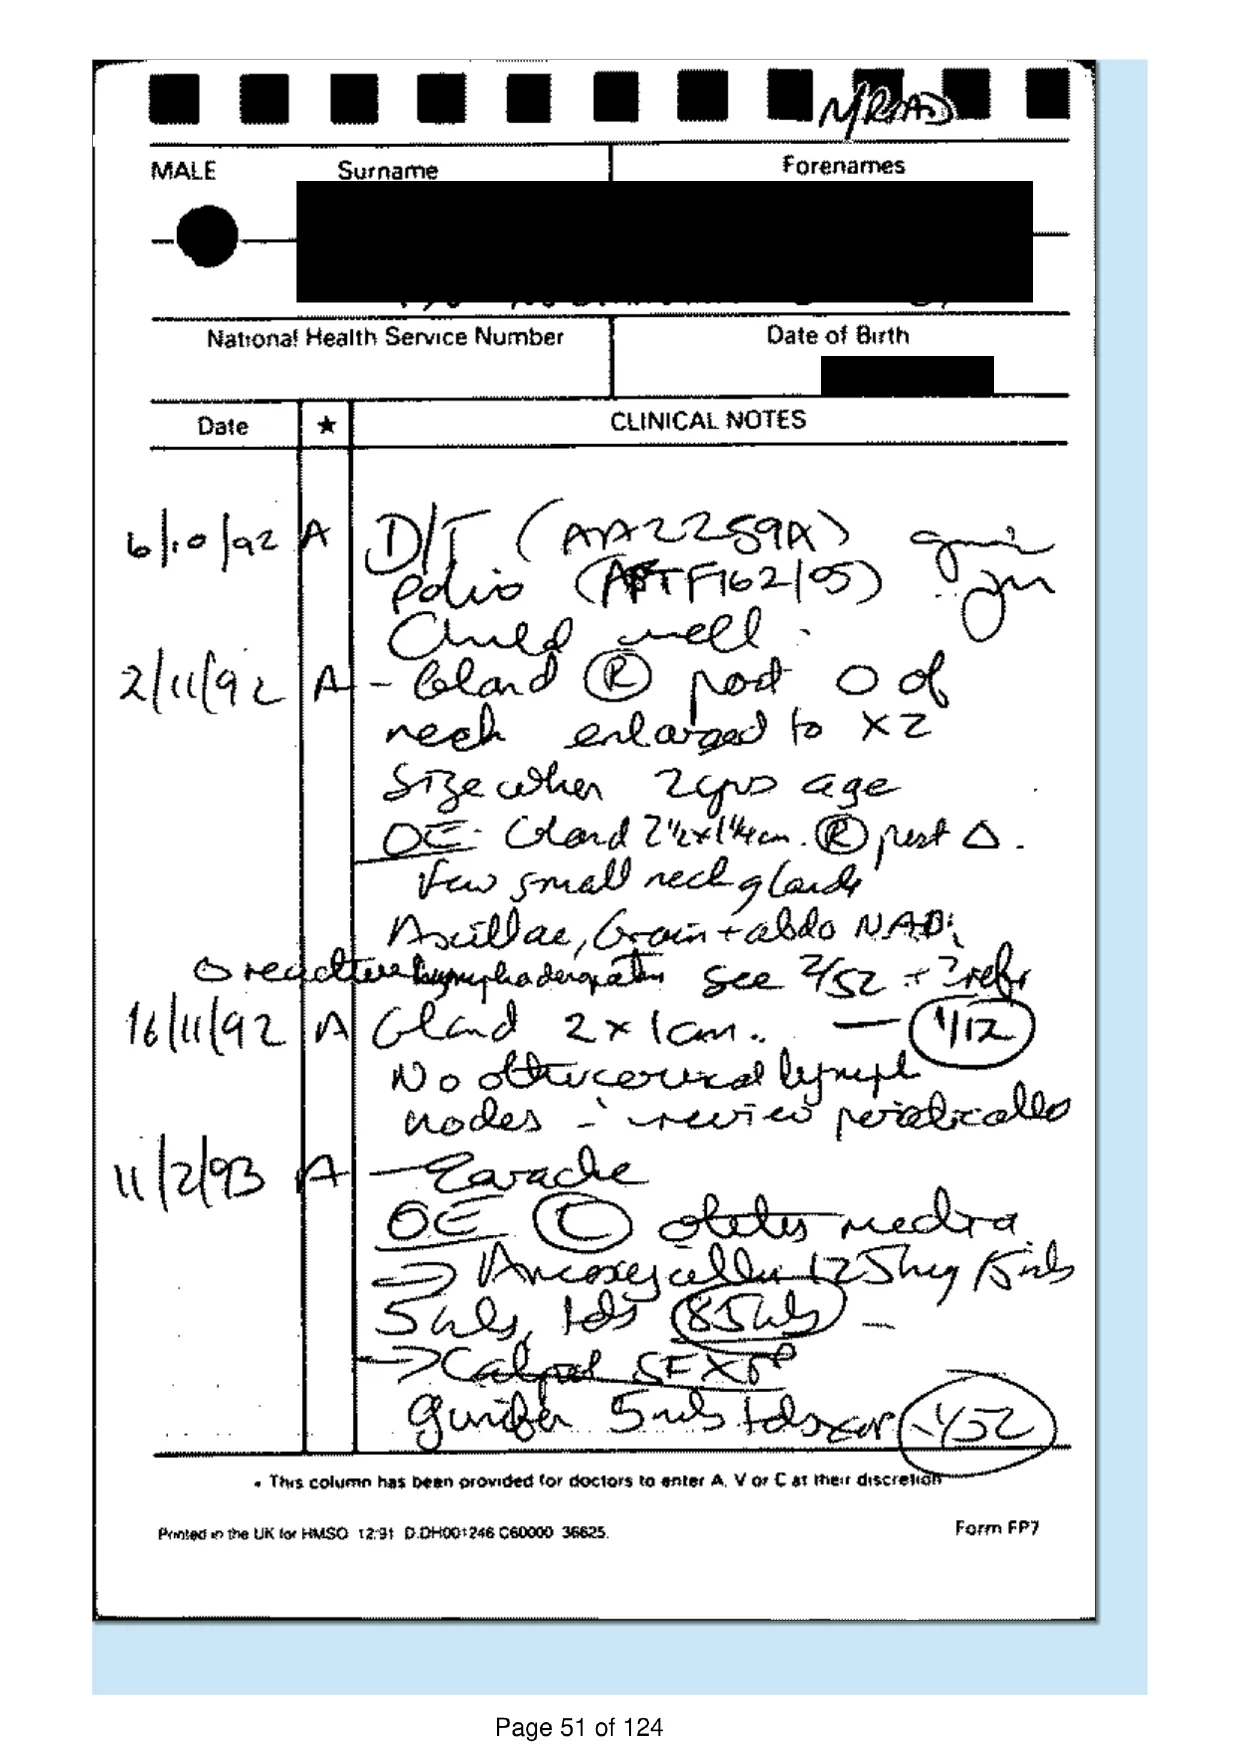 N/R AD
MALE Surname Forenames
National Health Service Number Date of Birth
Date ★ CLINICAL NOTES
6/10/92 A D/T (AA2259A) given
Polio (AFTF162/05)
Child well.
2/11/92 A - Gland Ⓡ post Δ of
neck enlarged to x2
Size when 2yrs age
OE - Gland 2½x1¼cm. Ⓡ post Δ.
Few small neck glands
Axillae, Groin + abdo NAD.
Δ reactive lymphadenopathy See 2/52 + ? refr
16/11/92 A Gland 2 x 1cm. — 1/12
No other cervical lymph
nodes - review periodically
11/2/93 A - Earache
OE Ⓛ otitis media
⇒ Amoxycillin 125mg/5mls
5mls, tds 85mls —
→ Calpol SF
5mls tds 1/52
• This column has been provided for doctors to enter A, V or C at their discretion
Printed in the UK for HMSO 12/91 D.DH001246 C60000 36625. Form FP7
Page 51 of 124